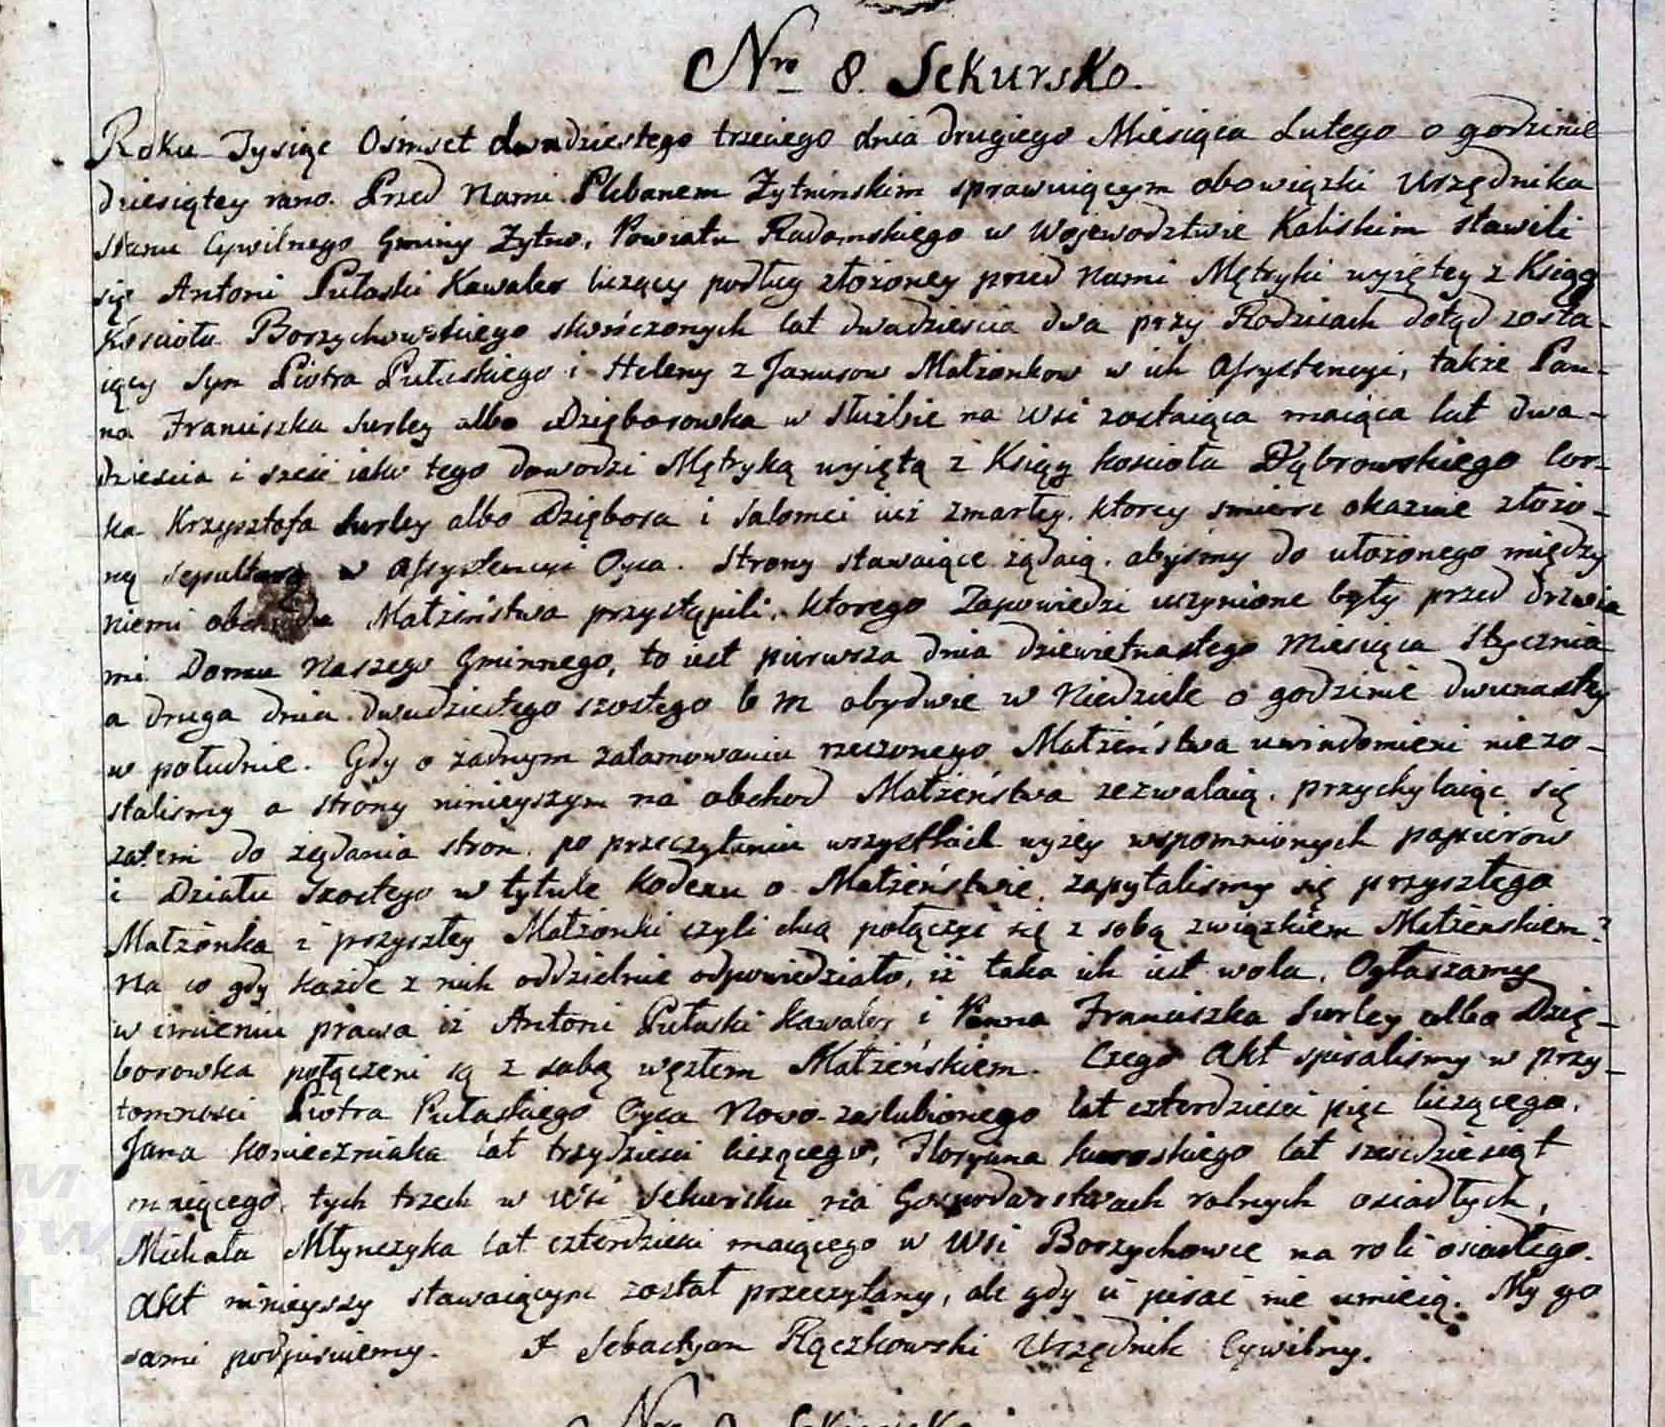 Nro 8. Sekursko.
Roku Tysiąc Osmset dwudziestego trzeciego dnia drugiego Miesiąca Lutego o godzinie
dziesiątey rano. Przed Nami Plebanem Zytninskim sprawuiącym obowiązki Urzędnika
Stanu Cywilnego Gminy Zytno, Powiatu Radomskiego w Wojewodztwie Kaliskim stawili
się Antoni Pułaski Kawaler liczący podług złożoney przed Nami Mętryki wyiętey z Księgg
Kościoła Borzychowskiego skończonych lat dwadzieścia dwa przy Rodzicach dotąd zosta-
iący Syn Piotra Pułaskiego i Heleny z Janusow Małżonkow w ich Assystencyi, także Pan-
na Franciszka Surley albo Dzięborowska w służbie na Wsi zostaiąca maiąca lat dwa-
dzieścia i sześć iako tego dowodzi Mętryką wyiętą z Księgg kościoła Dąbrowskiego Cor-
ka Krzysztofa Surley albo Dziębora i Salomei iuż zmarłey. ktorey smierc okazuie złożo-
ną Sepulturą w Assystencyi Oyca. Strony stawaiące żądaią. abyśmy do ułożonego między
niemi obchodu Małżeństwa przystąpili. ktorego Zapowiedzi uczynione były przed drzwia
mi Domu Naszego Gminnego, to iest pierwsza dnia dziewiętnastego Miesiąca Stycznia
a druga dnia dwudziestego szostego b m obydwie w Niedziele o godzinie dwunastey
w południe. Gdy o żadnym zatamowaniu rzeczonego Małżeństwa uwiadomieni niezo-
staliśmy a strony ninieyszym na obchod Małżeństwa zezwalaią. przychylaiąc się
zatem do żądania stron. po przeczytaniu wszystkich wyżey wspomnionych papierow
i Działu szostego w tytule Kodexu o Małżeństwie. zapytaliśmy się przyszłego
Małżonka i przyszłey Małżonki czyli chcą połączyć się z sobą związkiem Małżenskiem?
Na co gdy każde z nich oddzielnie odpowiedziało, iż taka ich iest wola. Ogłaszamy
w imieniu prawa iż Antoni Pułaski Kawaler i Panna Franciszka Surley albo Dzię-
borowska połączeni są z sobą węzłem Małżeńskiem. Czego Akt spisaliśmy w przy-
tomności Piotra Pułaskiego Oyca Nowo-zaslubionego lat czterdzieści pięć liczącego.
Jana Konieczniaka lat trzydzieści liczącego, Floryana Kuroskiego lat sześćdziesiąt
maiącego tych trzech w Wsi Sekursku na Gospodarstwach rolnych osiadłych,
Michała Młynczyka lat czterdzieści maiącego w Wsi Borzychowce na roli osiadłego.
Akt ninieyszy stawaiącym został przeczytany, ale gdy ci pisać nie umieią. My go
sami podpisuiemy. X Sebastyan Rączkowski Urzędnik Cywilny.